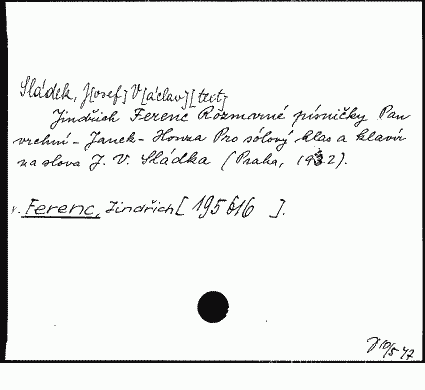 Sládek, J[osef] V[áclav] [text]
Jindřich Ferenc Rozmarné písničky Pan
vrchní - Janek - Honza Pro sólový hlas a klavír
na slova J. V. Sládka (Praha, 1932).
v. Ferenc, Jindřich [ 195616 ].
10/5 47